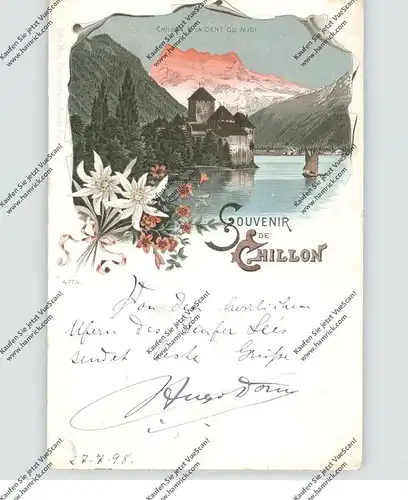 CHILLON LA DENT DU MIDI
SOUVENIR
DE
CHILLON
4774.
Von den herrlichen
Ufern des Genfer Sees
sendet beste Grüße
Hugo Dorn
27.7.98.
Kaufen Sie jetzt VueScan!
www.hamrick.com